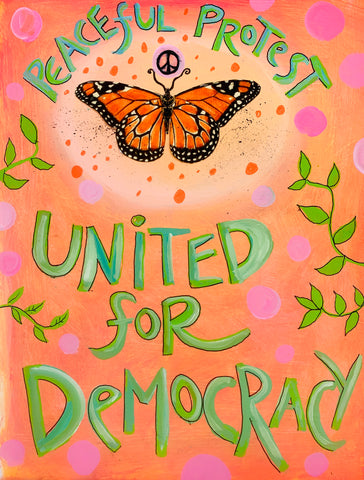 PEACEfUL PROTEST
UNiTED
foR
DeMOCRACY